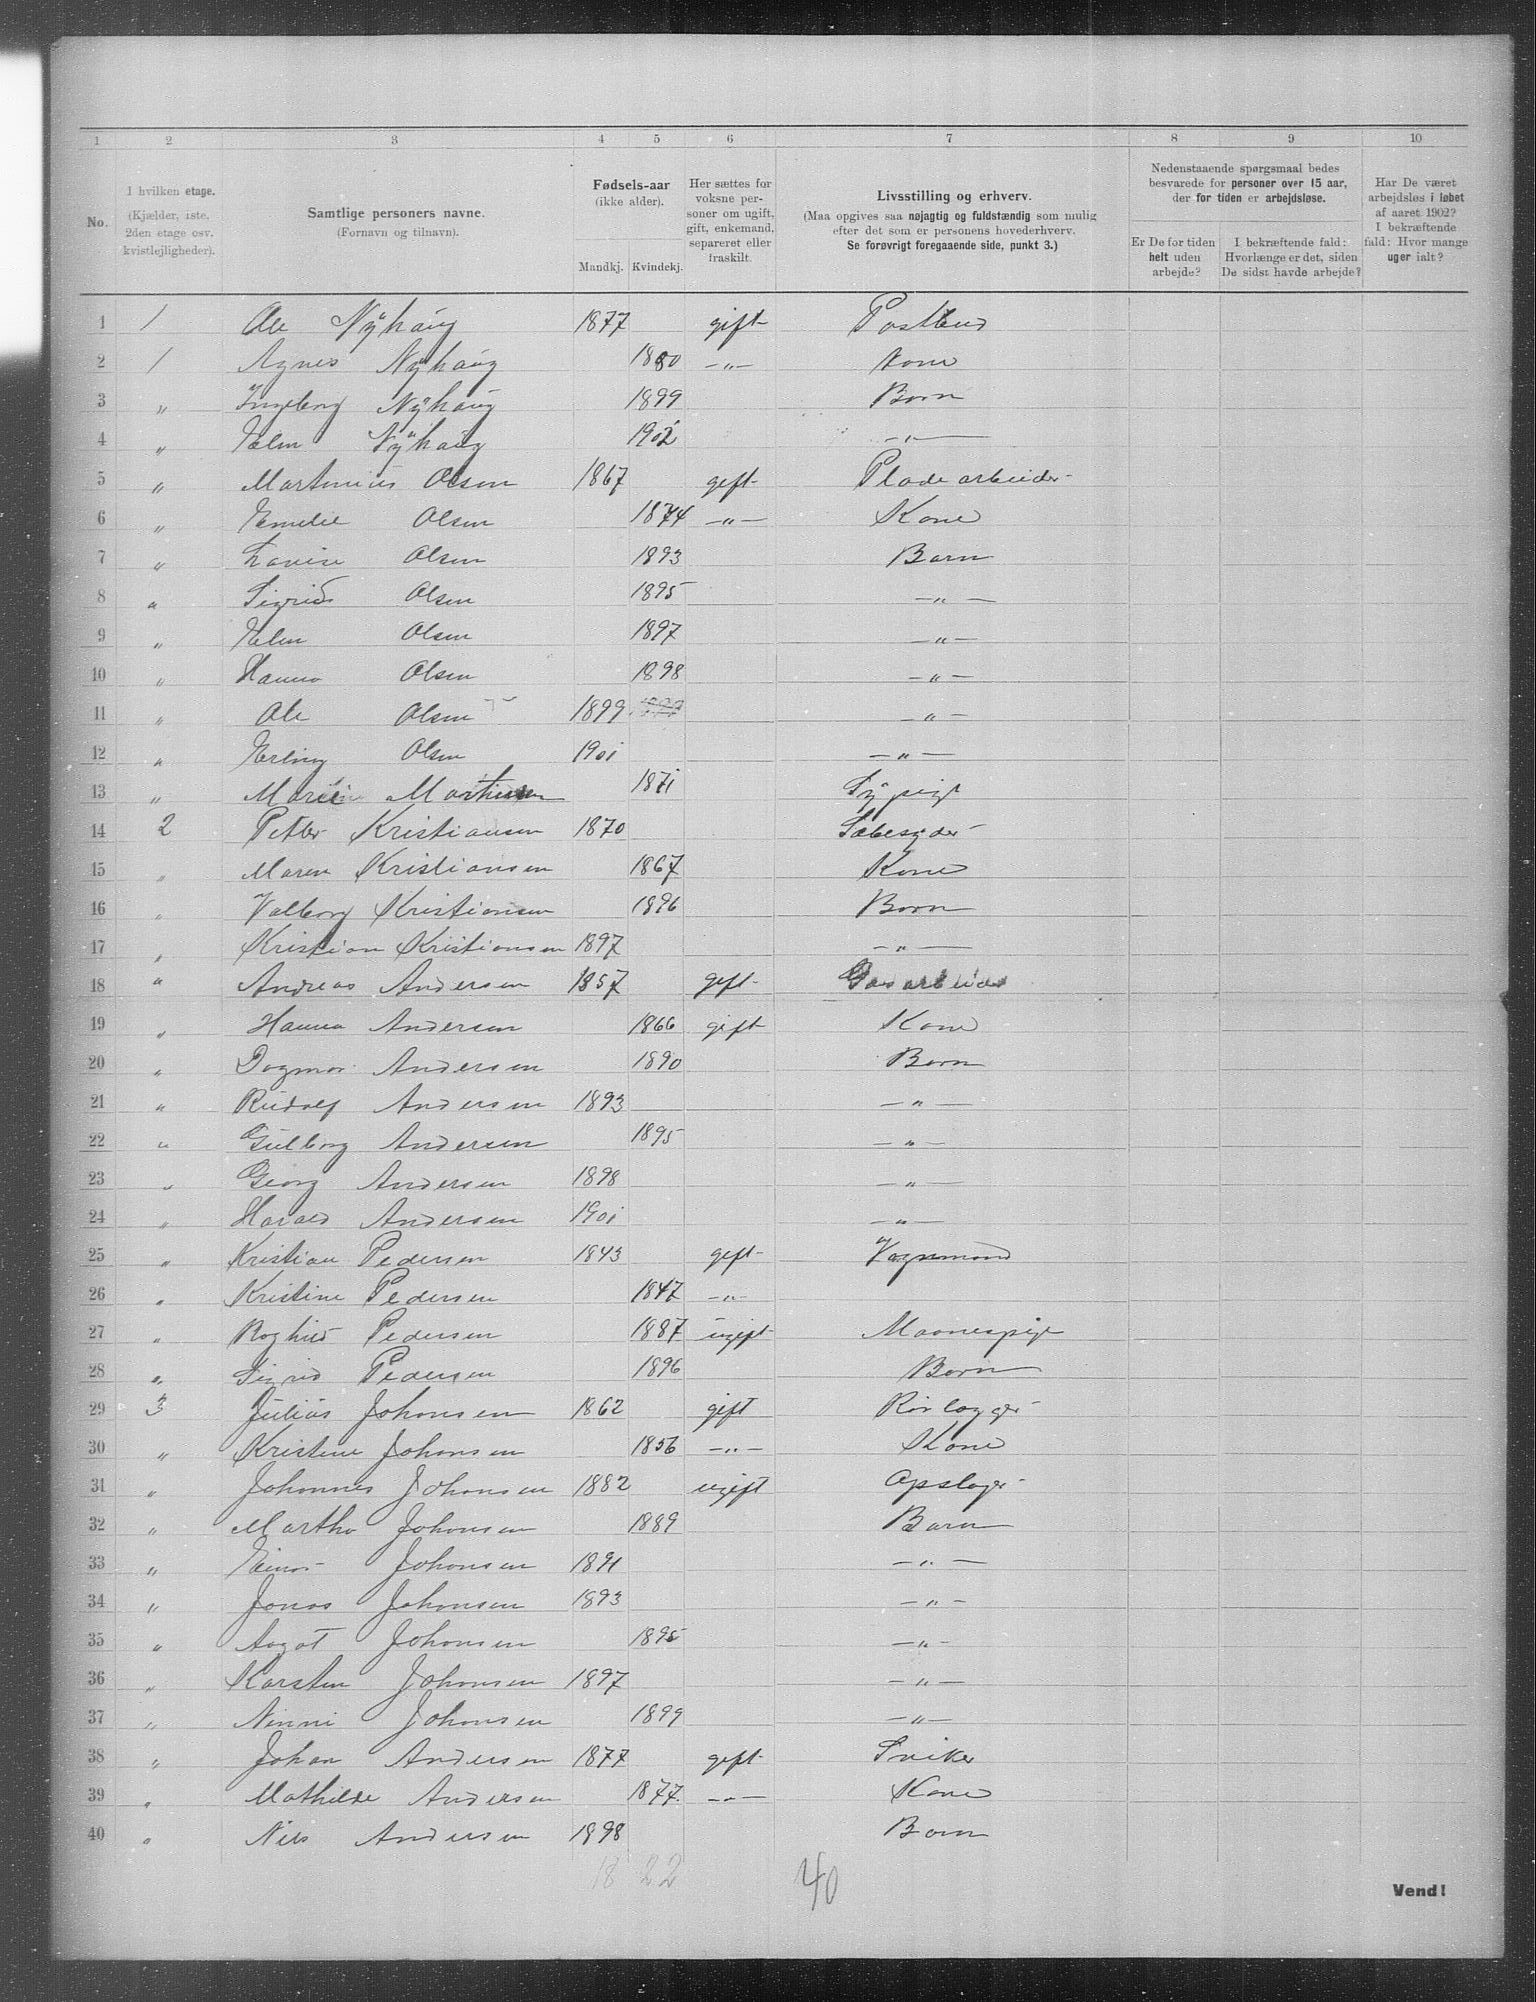 1 2 3 4 5 6 7 8 9 10
No.
I hvilken etage.
(Kjælder, 1ste.
2den etage osv.
kvistlejligheder).
Samtlige personers navne.
(Fornavn og tilnavn).
Fødsels-aar
(ikke alder).
Mandkj. Kvindekj.
Her sættes for
voksne per-
soner om ugift,
gift, enkemand,
separeret eller
fraskilt.
Livsstilling og erhverv.
(Maa opgives saa nøjagtig og fuldstændig som mulig
efter det som er personens hovederhverv.
Se forøvrigt foregaaende side, punkt 3.)
Nedenstaaende spørgsmaal bedes
besvarede for personer over 15 aar,
der for tiden er arbejdsløse.
Er De for tiden
helt uden
arbejde?
I bekræftende fald:
Hvorlænge er det, siden
De sidst havde arbejde?
Har De været
arbejdsløs i løbet
af aaret 1902?
I bekræftende
fald: Hvor mange
uger ialt?
1 1 Ole Nÿhaug 1877 gift Postbud
2 1 Agnes Nÿhaug 1880 —"— Kone
3 " Ingeborg Nÿhaug 1899 Barn
4 " Elen Nÿhaug 1902 —"—
5 " Martinius Olsen 1867 gift Pladearbeider
6 " Emelie Olsen 1874 —"— Kone
7 " Lovise Olsen 1893 Barn
8 " Sigrid Olsen 1895 —"—
9 " Elen Olsen 1897 —"—
10 " Hanna Olsen 1898 —"—
11 " Ole Olsen 1899 —"—
12 " Erling Olsen 1901 —"—
13 " Marie 1871 Sÿpige
14 2 Petter Kristiansen 1870 Sæbesyder
15 " Maren Kristiansen 1867 Kone
16 " Valborg Kristiansen 1896 Barn
17 " Kristian Kristiansen 1897 —"—
18 " Andreas Andersen 1857 gift Gasarbeider
19 " Hanna Andersen 1866 gift Kone
20 " Dagmar Andersen 1890 Barn
21 " Rudolf Andersen 1893 —"—
22 " Gulborg Andersen 1895 —"—
23 " Georg Andersen 1898 —"—
24 " Harald Andersen 1901 —"—
25 " Kristian Pedersen 1843 gift Vognmand
26 " Kristine Pedersen 1847 —"—
27 " Raghild Pedersen 1887 ugift
28 " Sigrid Pedersen 1896 Barn
29 3 Julius Johansen 1862 gift Rørlægger
30 " Kristine Johansen 1856 —"— Kone
31 " Johannes Johansen 1882 ugift Opslager
32 " Martha Johansen 1889 Barn
33 " Einar Johansen 1891 —"—
34 " Jonas Johansen 1893 —"—
35 " Aagot Johansen 1895 —"—
36 " Karsten Johansen 1897 —"—
37 " Ninni Johansen 1899 —"—
38 " Johan Andersen 1877 gift Sniker
39 " Mathilde Andersen 1877 —"— Kone
40 " Nils Andersen 1898 Barn
18 22 40
Vend!